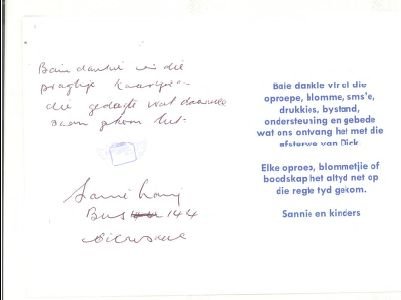 Baie dankie vir die
pragtige kaartjie
die gedagte wat daarmee
saam gekom het.
Sannie
Bus 144
Baie dankie vir al die
oproepe, blomme, sms'e,
drukkies, bystand,
ondersteuning en gebede
wat ons ontvang het met die
afsterwe van Dick.
Elke oproep, blommetjie of
boodskap het altyd net op
die regte tyd gekom.
Sannie en kinders